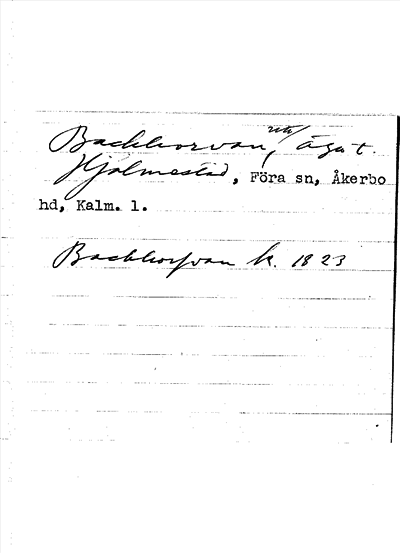 Backhorvan, äga t.
Hjälmestad, Föra sn, Åkerbo
hd, Kalm. l.
Backhorfvan k. 1823